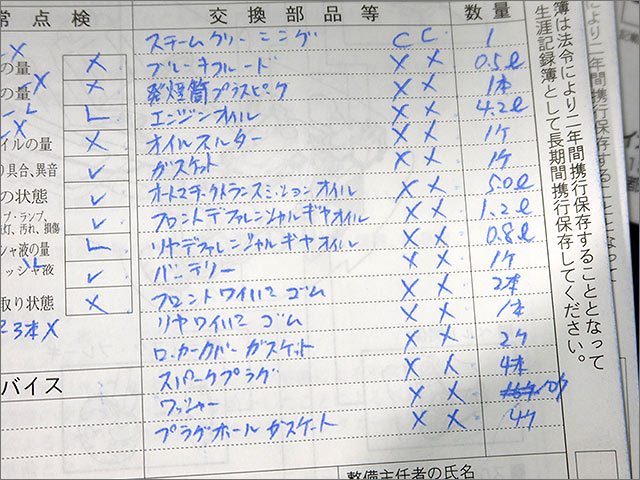 常点検 交換部品等 数量
スチームクリーニング C C 1
X
の量 X ブレーキフルード X X 0.5ℓ
の量 X 発煙筒プラスピーク X X 1本
X
エンジンオイル X X 4.2ℓ
イルの量 X オイルフィルター X X 1ケ
り具合、異音 ✓ ガスケット X X 1ケ
の状態 ✓ オートマチックトランスミッションオイル X X 5.0ℓ
プ・ランプ、
火灯、汚れ、損傷 ✓ フロントデファレンシャルギヤオイル X X 1.2ℓ
シャ液の量 リヤデファレンジャルギヤオイル X X 0.8ℓ
ッシャ液 ✓ バッテリー X X 1ケ
取り状態 X フロントワイパーゴム X X 2本
3本X リヤワイパーゴム X X 1本
ロッカーカバーガスケット X X 2ケ
バイス スパークプラグ X X 4本
ワッシャー X X 10ケ
プラグホールガスケート X X 4ケ
整備主任者の氏名
簿は法令により二年間携行保存することとなって
生涯記録簿として長期間携行保存してください。
により二年間携行保存することとなって